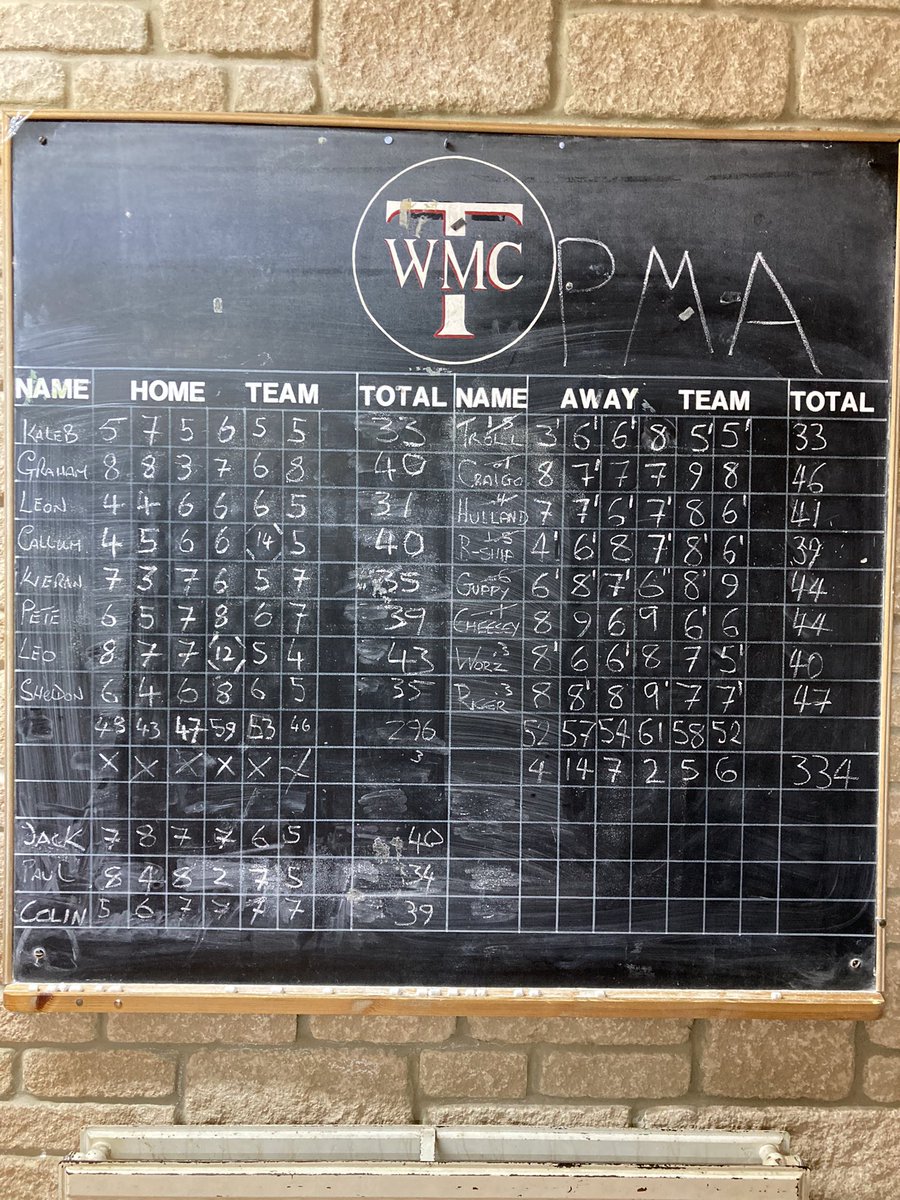 T
WMC
PMA
NAME HOME TEAM TOTAL NAME AWAY TEAM TOTAL
KALEB 5 7 5 6 5 5 33 TROLL 3' 6' 6' 8 5' 5' 33
GRAHAM 8 8 3 7 6 8 40 CRAIGO 8 7' 7 7 9 8 46
LEON 4 4 6 6 6 5 31 HULLAND 7 7' 6' 7' 8 6' 41
CALLUM 4 5 6 6 14 5 40 R-SHIP 4' 6' 8 7' 8' 6' 39
KIERAN 7 3 7 6 5 7 35 GUPPY 6' 8' 7' 6" 8' 9 44
PETE 6 5 7 8 6 7 39 CHEESEY 8 9 6 9 6' 6 44
LEO 8 7 7 12 5 4 43 WORZ 8' 6 6' 8 7 5' 40
SHELDON 6 4 6 8 6 5 35 8 8' 8 9' 7 7' 47
43 47 59 53 46 296 52 57 54 61 58 52
X X X X X X 3 4 14 7 2 5 6 334
JACK 7 8 7 7 6 5 40
PAUL 8 4 8 2 7 5 34
COLIN 5 6 7 7 7 7 39